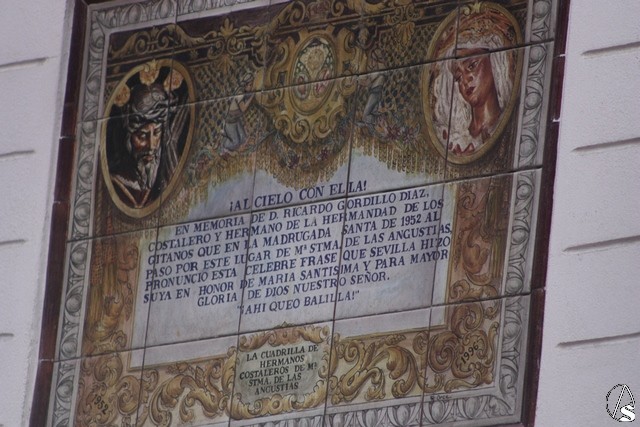 ¡AL CIELO CON ELLA!
EN MEMORIA DE D. RICARDO GORDILLO DIAZ,
COSTALERO Y HERMANO DE LA HERMANDAD DE LOS
GITANOS QUE EN LA MADRUGADA SANTA DE 1952 AL
PASO POR ESTE LUGAR DE Mª STMA. DE LAS ANGUSTIAS,
PRONUNCIO ESTA CELEBRE FRASE QUE SEVILLA HIZO
SUYA EN HONOR DE MARIA SANTISIMA Y PARA MAYOR
GLORIA DE DIOS NUESTRO SEÑOR.
"SAHI QUEO BALILLA!"
LA CUADRILLA DE
HERMANOS
COSTALEROS DE Mª
STMA. DE LAS
ANGUSTIAS
1952
1996